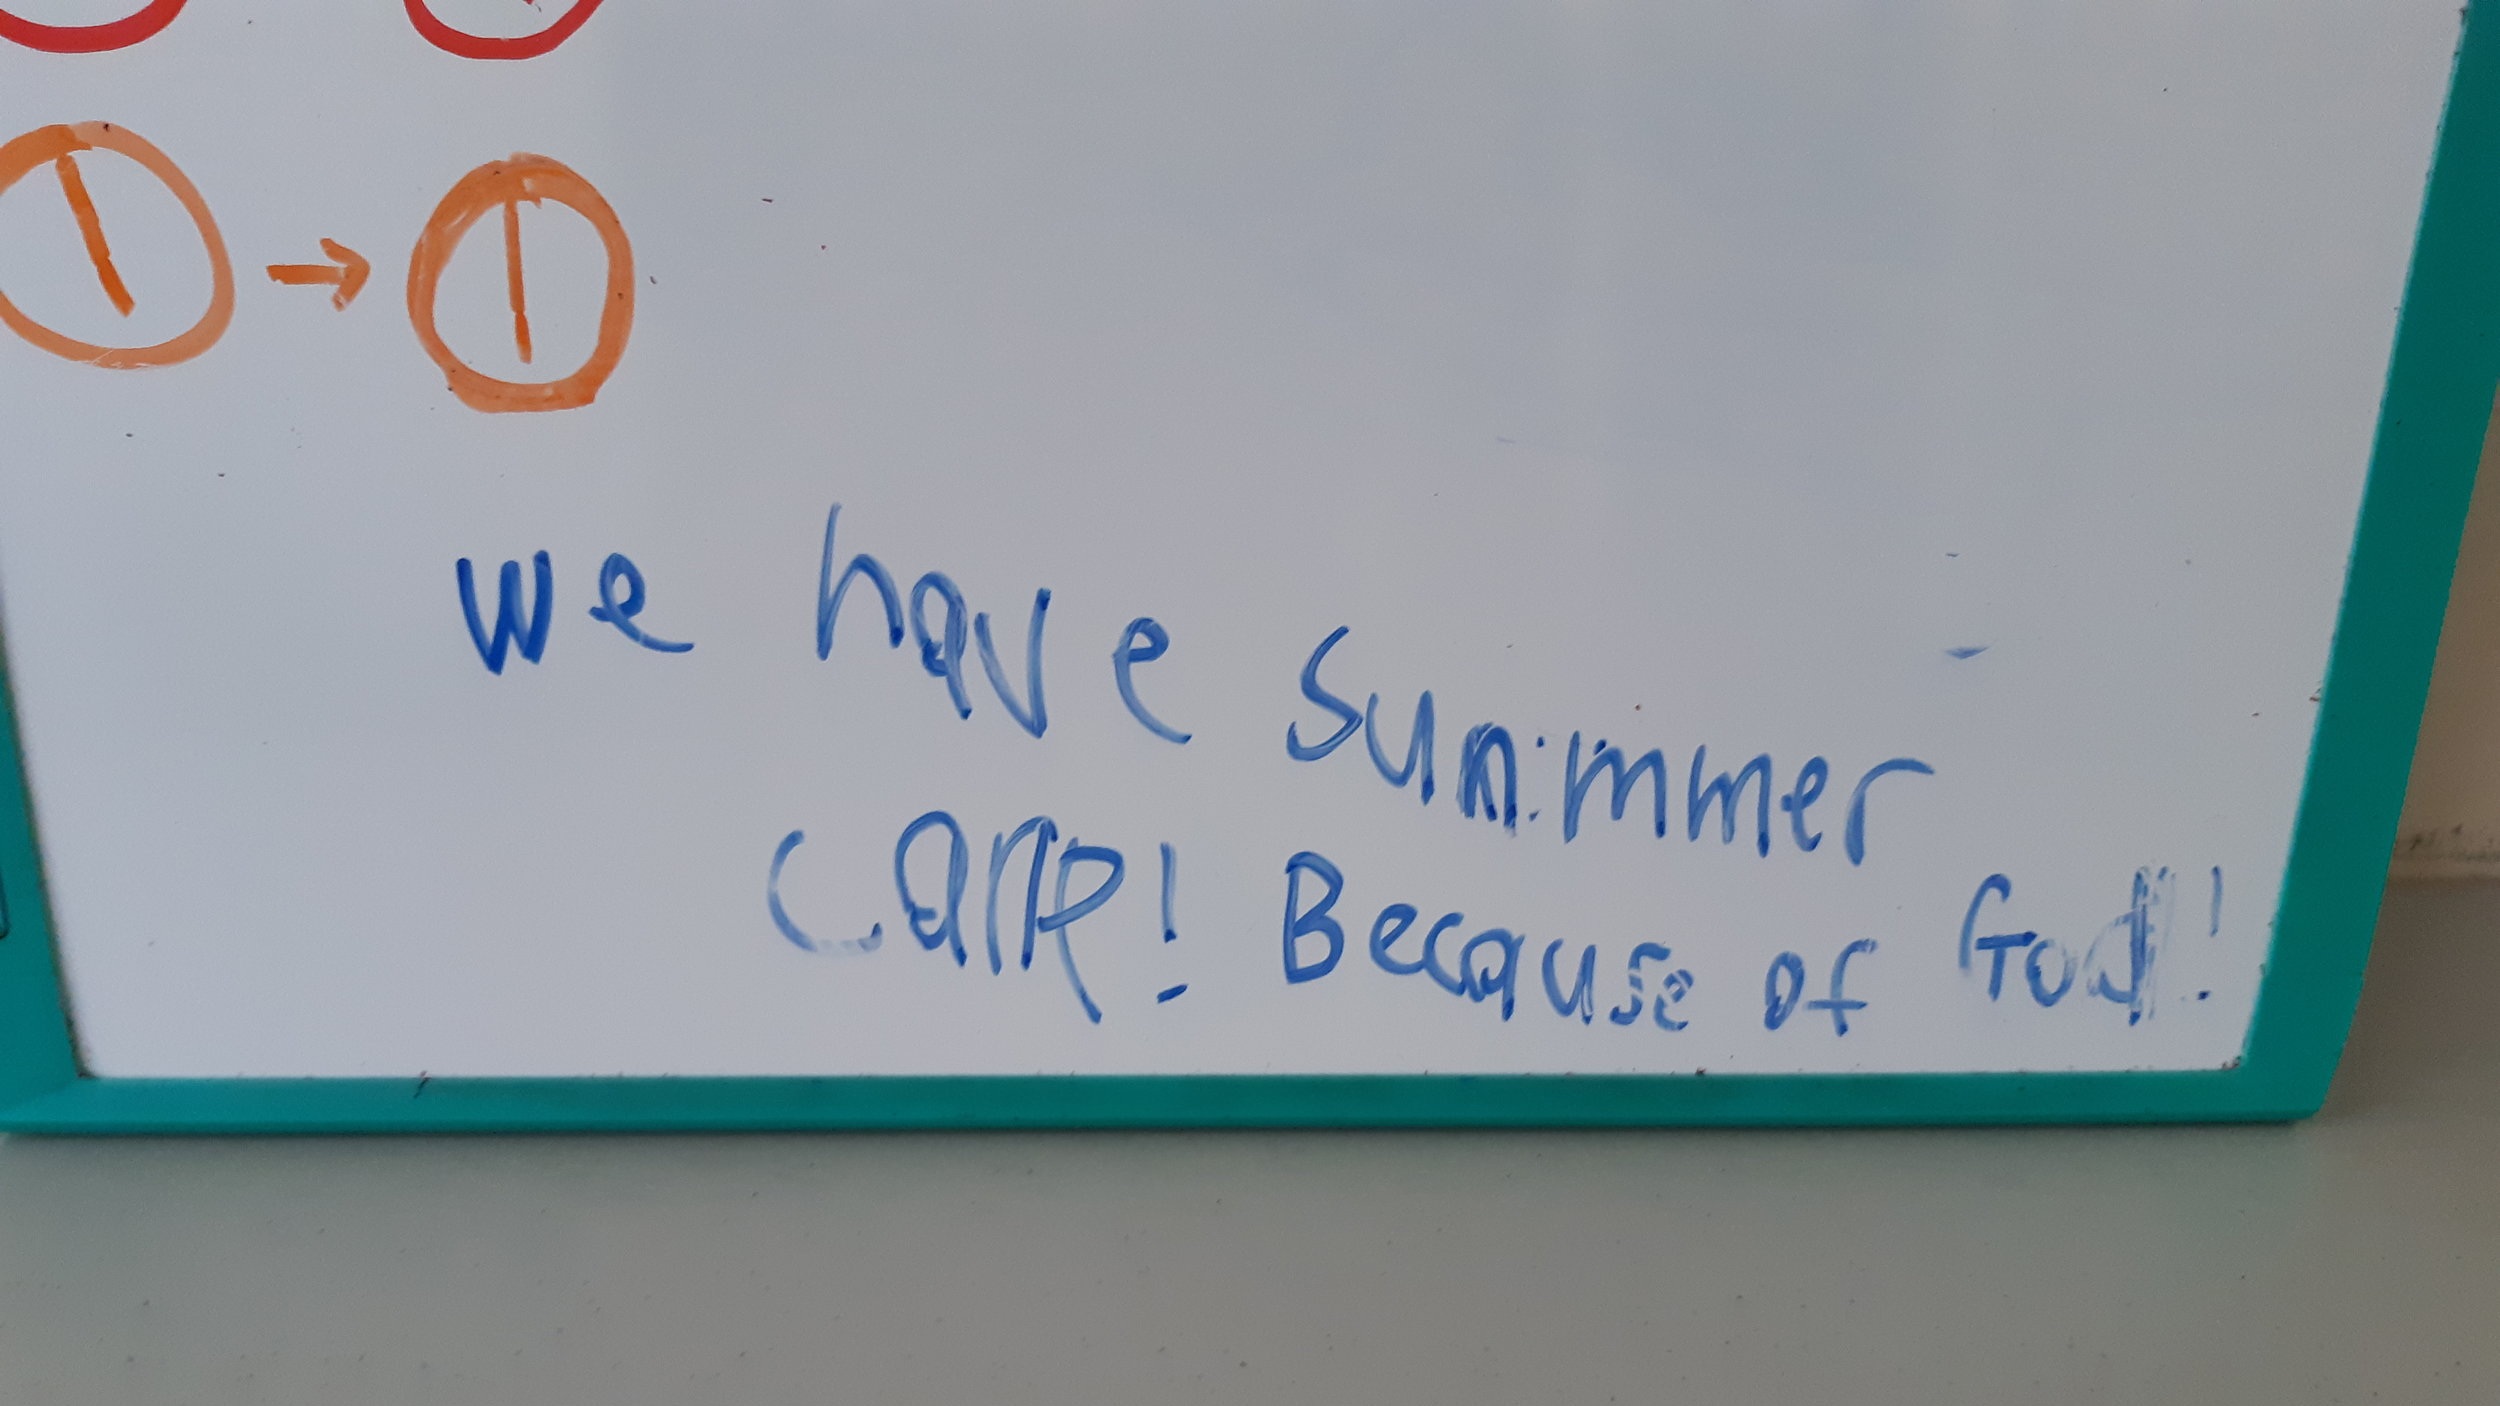 We have Sunimmer
camp! Because of God!